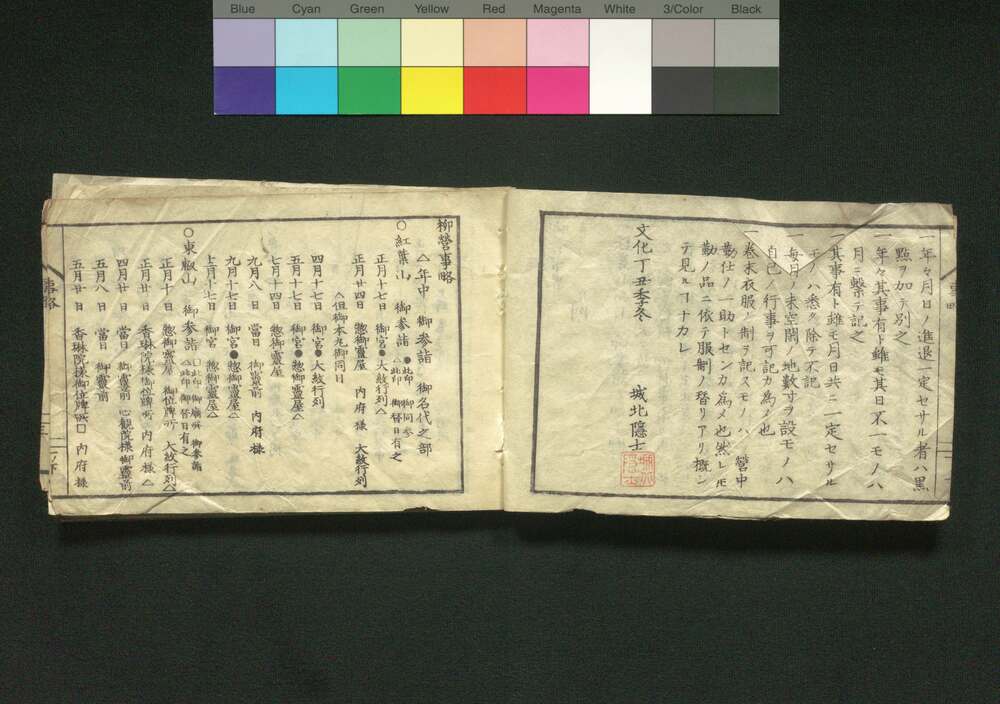 Blue Cyan Green Yellow Red Magenta White 3/Color Black
一年々月日ノ進退一定セサル者ハ黒
點ヲ加テ別之
一年々其事有ト雖モ其日不一モノハ
月ニ繋テ記之
一其事有ト雖モ月日共ニ一定セサル
モノハ悉ク除テ不記
一毎月ノ末空闕ノ地数寸ヲ設モノハ
自己ノ行事ヲ可記カ為メ也
一巻末衣服ノ制ヲ記スモノハ 營中
勤仕ノ一助トセンカ為メ也然レ𪜈
勤ノ品ニ依テ服制ノ替リアリ概シ
テ見ルヿナカレ
文化丁丑季冬 城北隠士
柳營事略
△年中 御参詣 御名代之部
○紅葉山 御参詣 ●此印 御同参 △此印 御替日有之
正月十七日 御宮●大紋行列△
正月廿四日 惣御靈屋 内府様 大紋行列
△但御本丸御同日
四月十七日 御宮●大紋行列
五月十七日 御宮●惣御靈屋△
七月十四日 惣御靈屋
九月八日 當日 御靈前 内府様
九月十七日 御宮●惣御靈屋△
十二月十七日 御宮 惣御靈屋△
○東叡山 御参詣 御参詣 △此印 御替日有之
正月十日 惣御靈屋 御位牌所 大紋行列△
正月廿日 香琳院様御位牌所 内府様△
四月廿日 當日 御靈前 心観院様御靈前
五月八日 當日 御靈前
五月廿日 香琳院様御位牌所 内府様